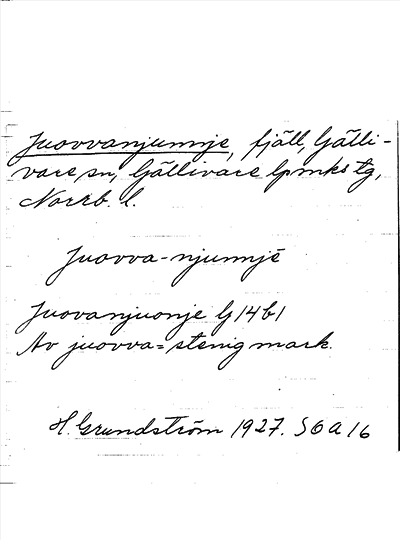 Juovvanjunnje, fjäll, Gälli-
vare sn, Gällivare lpmks tg,
Norrb. l.
Juovva-njunnjē
Juovanjuonje G14b1
Av juovva = stenig mark.
H. Grundström 1927. SOA 16